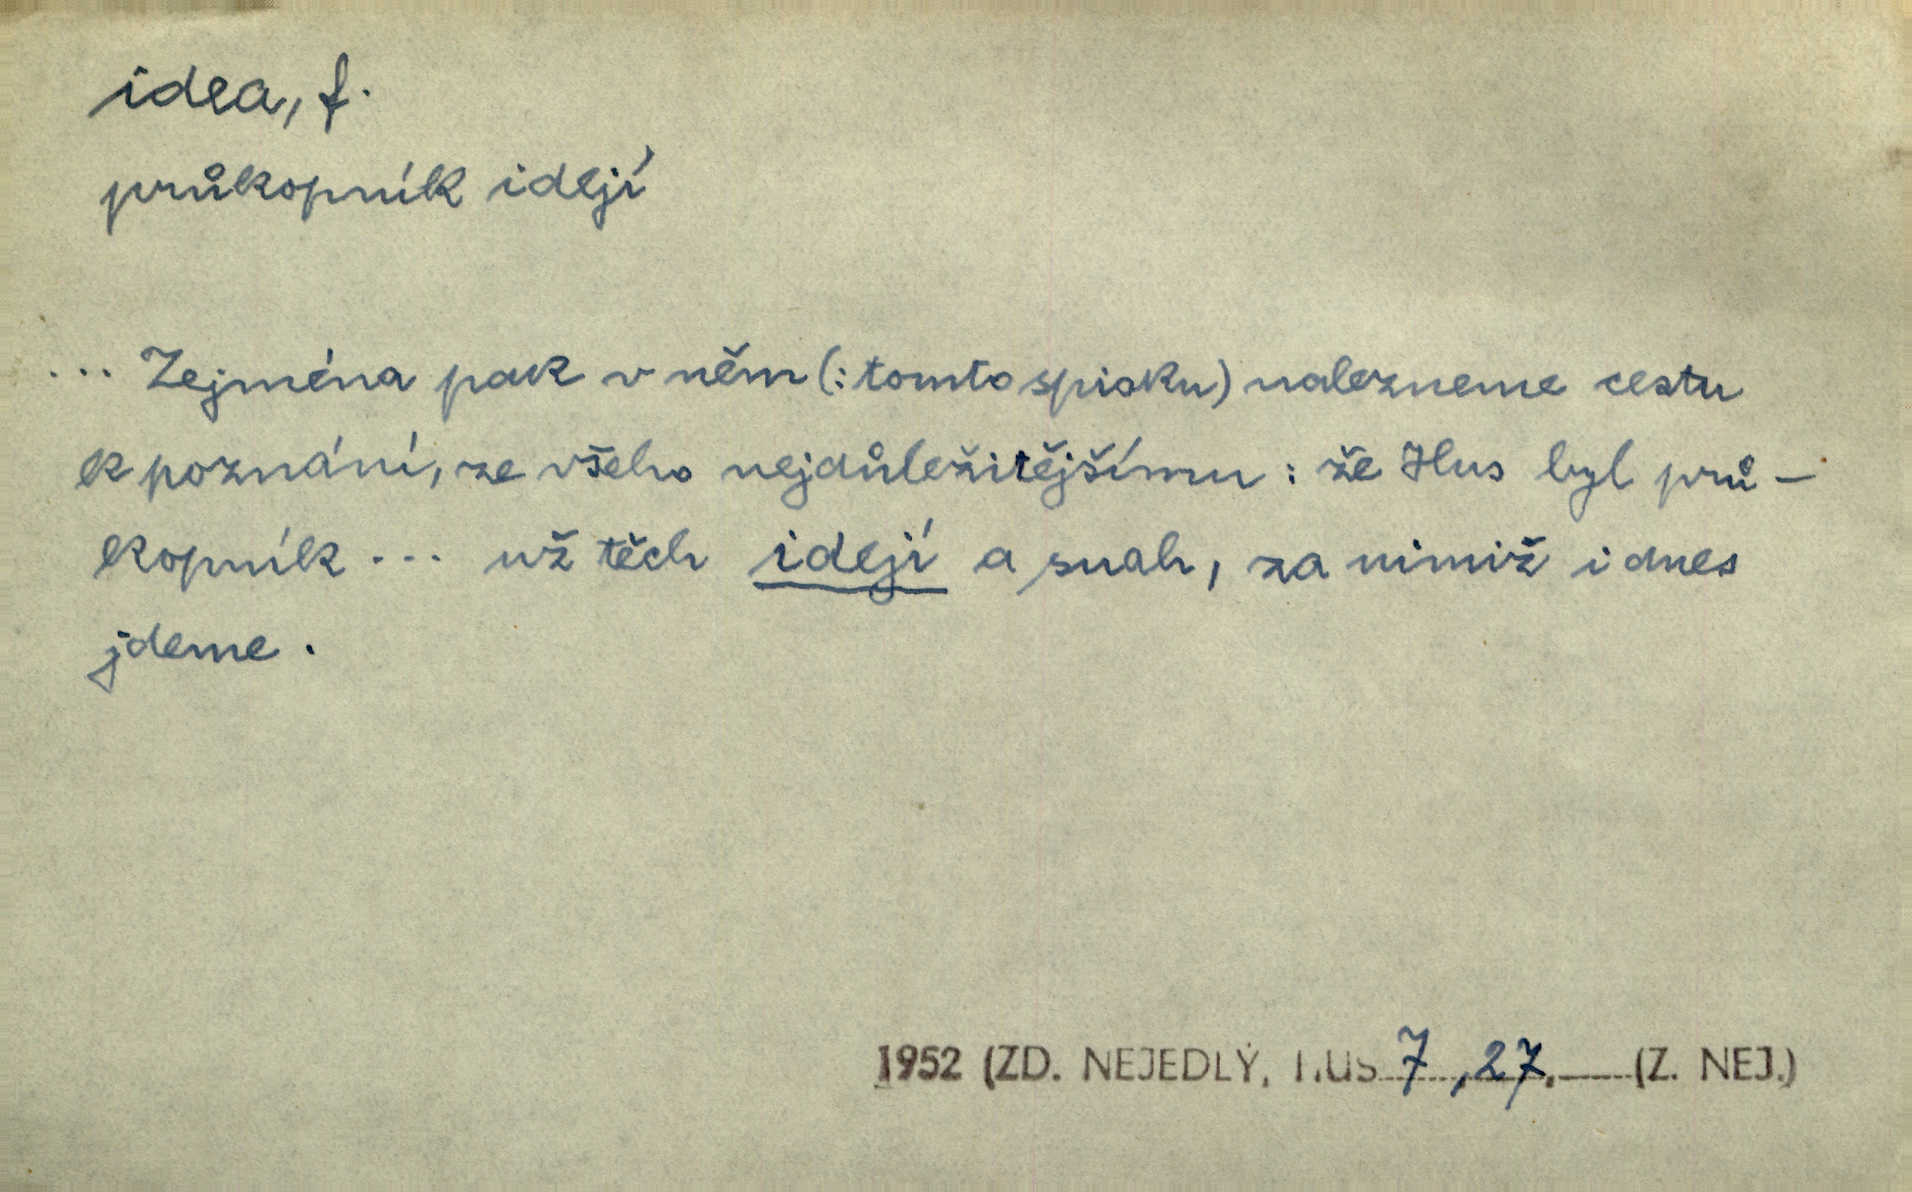 idea, f.
průkopník idejí
... Zejména pak v něm (: tomto spisku) nalezneme cestu
k poznání, ze všeho nejdůležitějšímu : že Hus byl prů-
kopník ... už těch idejí a snah, za nimiž i dnes
jdeme .
1952 (ZD. NEJEDLÝ, HUS 7, 27, (Z. NEJ.)